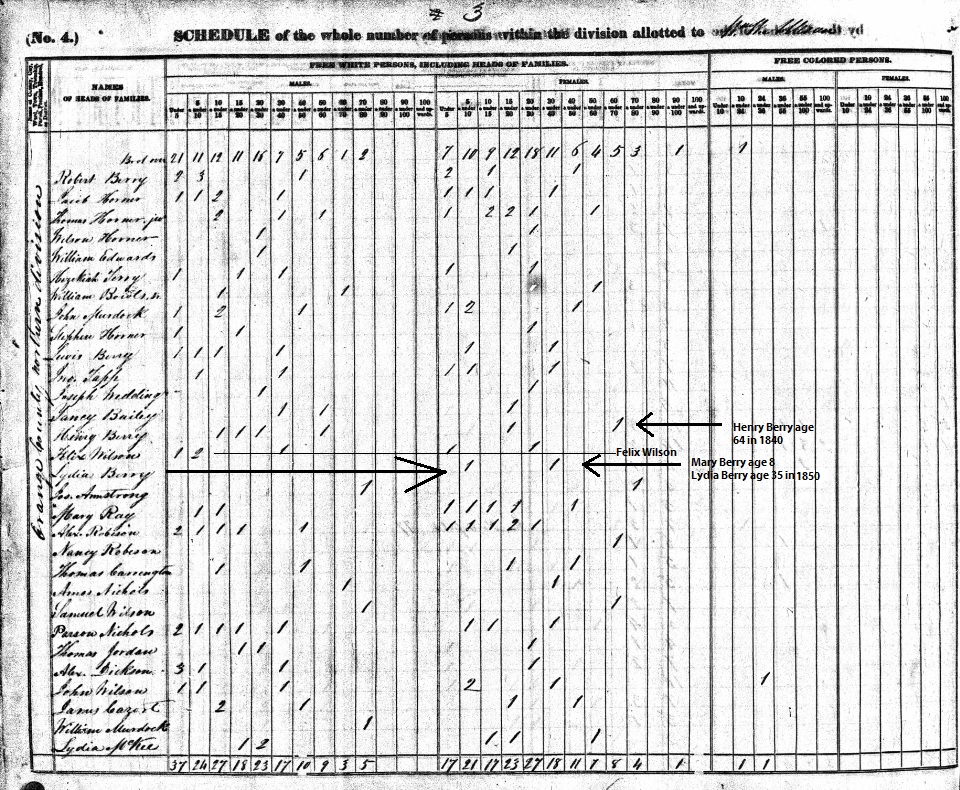 3
(No. 4.) SCHEDULE of the whole number of persons within the division allotted to by
FREE WHITE PERSONS, INCLUDING HEADS OF FAMILIES. FREE COLORED PERSONS.
NAMES OF HEADS OF FAMILIES. MALES. FEMALES. MALES. FEMALES.
Orange County northern division
21 11 12 11 16 7 5 6 1 2 7 10 9 12 18 11 6 4 5 3 1 1
Robert Berry 2 3 1 2 1 1
Jacob Horner 1 1 2 1 1 1 1 1
Thomas Horner, jr 2 1 1 1 2 2 1 1
Wilson Horner 1 1
William Edwards 1 1
Hezekiah Terry 1 1 1 1 1
William Boids, sr 1 1 1
John Murdock 1 2 1 1 2 1
Stephen Horner 1 1 1
Lewis Berry 1 1 1 1 1 1
Jno. Tapp 1 1 1 1 1
Joseph Wedding 1 1
Nancy Bailey 1 1 1
Henry Berry 1 1 1 1 1 1
Henry Berry age 64 in 1840
Felix Wilson 1 2 1 1 1
Felix Wilson
Lydia Berry 1 1
Mary Berry age 8
Lydia Berry age 35 in 1850
Jos. Armstrong 1 1
Mary Ray 1 1 1 1 1 1 1
Alex. Robison 2 1 1 1 1 1 1 1 2 1
Nancy Robison 1
Thomas Carrington 1 1 1 1
Amos Nichols 1 1
Samuel Wilson 1 1
Parson Nichols 2 1 1 1 1 1 1 1
Thomas Jordan 1 1 1
Alex. Dickson 3 1 1 1
John Wilson 1 1 1 2 1 1
James Cazort 2 1 1 1
William Murdock 1
Lydia McKee 1 2 1 1 1
37 24 27 18 23 17 10 9 3 5 17 21 17 23 27 18 11 7 8 4 1 1 1